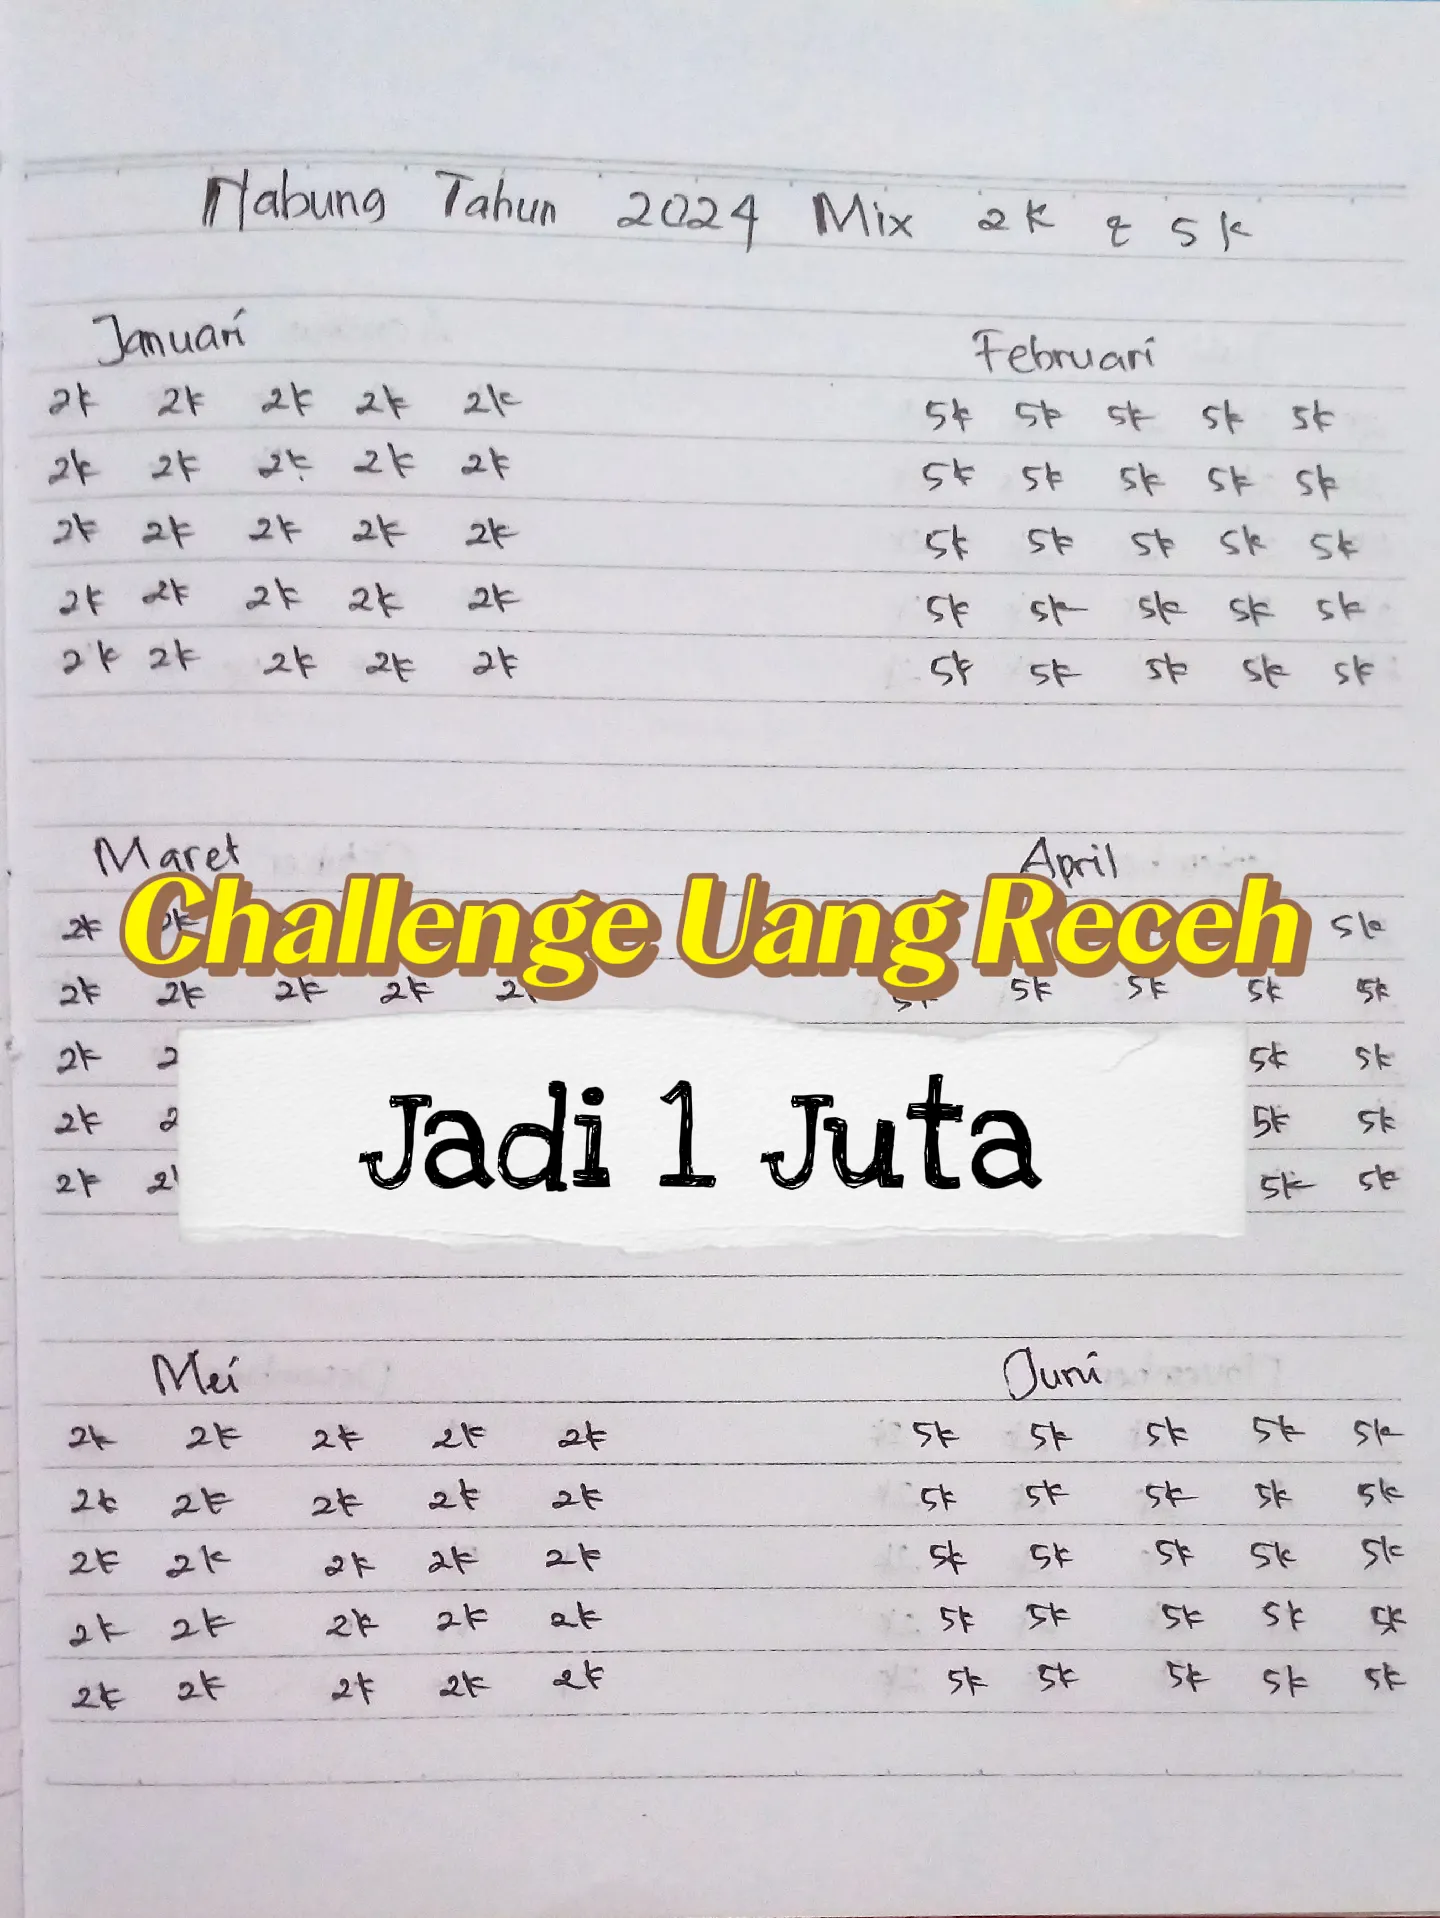 Nabung Tahun 2024 Mix 2k & 5k
Januari Februari
2k 2k 2k 2k 2k 5k 5k 5k 5k 5k
2k 2k 2k 2k 2k 5k 5k 5k 5k 5k
2k 2k 2k 2k 2k 5k 5k 5k 5k 5k
2k 2k 2k 2k 2k 5k 5k 5k 5k 5k
2k 2k 2k 2k 2k 5k 5k 5k 5k 5k
Maret April
2k 2k 5k
Challenge Uang Receh
2k 2k 2k 2k 5k 5k 5k 5k
2k 5k 5k
Jadi 1 Juta
2k 5k 5k
2k 5k 5k
Mei Juni
2k 2k 2k 2k 2k 5k 5k 5k 5k 5k
2k 2k 2k 2k 2k 5k 5k 5k 5k 5k
2k 2k 2k 2k 2k 5k 5k 5k 5k 5k
2k 2k 2k 2k 2k 5k 5k 5k 5k 5k
2k 2k 2k 2k 2k 5k 5k 5k 5k 5k